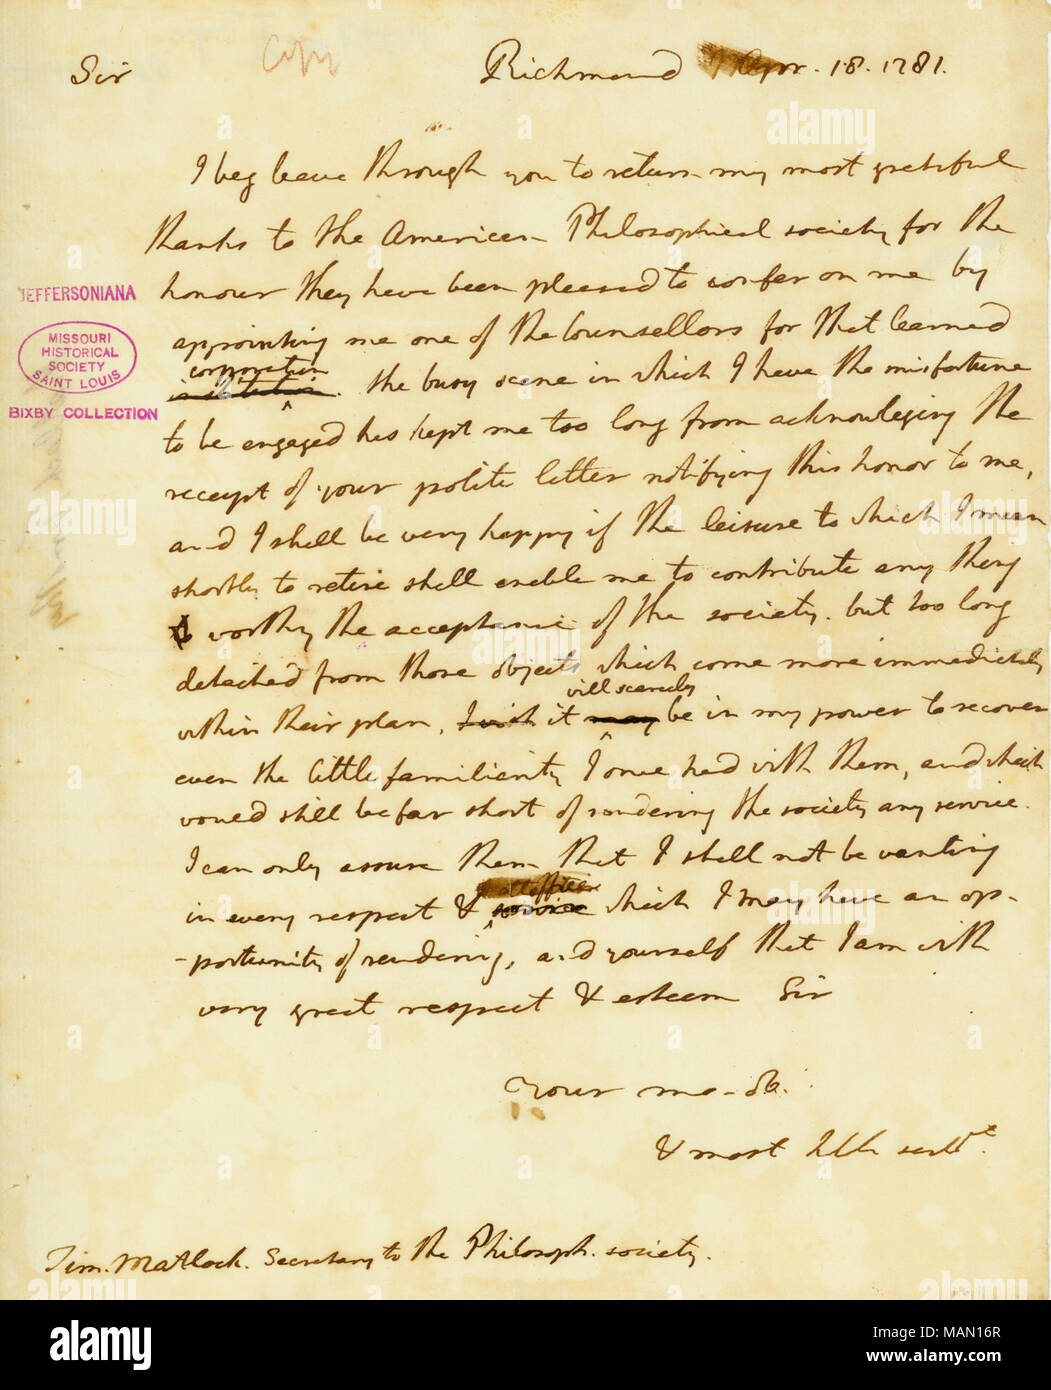 Copy
Sir Richmond Apr. 18. 1781.
I beg leave through you to return my most grateful
thanks to the American Philosophical society for the
honour they have been pleased to confer on me by
appointing me one of the Counsellors for that learned
corporation
institution. the busy scene in which I have the misfortune
to be engaged has kept me too long from acknowleging the
receipt of your polite letter notifying this honor to me,
and I shall be very happy if the leisure to which I mean
shortly to retire shall enable me to contribute any thing
worthy the acceptance of the society. but too long
detached from those objects which come more immediately
will scarcely
within their plan, I wish it may be in my power to recover
even the little familiarity I once had with them, and which
would still be far short of rendering the society any service.
I can only assure them that I shall not be wanting
all offices
in every respect & service which I may have an op-
-portunity of rendering, and yourself that I am with
very great respect & esteem Sir
Your mo. ob.
& most hble servt.
Tim. Matlack. Secretary to the Philosoph. society.
JEFFERSONIANA
MISSOURI
HISTORICAL
SOCIETY
SAINT LOUIS
BIXBY COLLECTION
alamy
Image ID: MAN16R
www.alamy.com